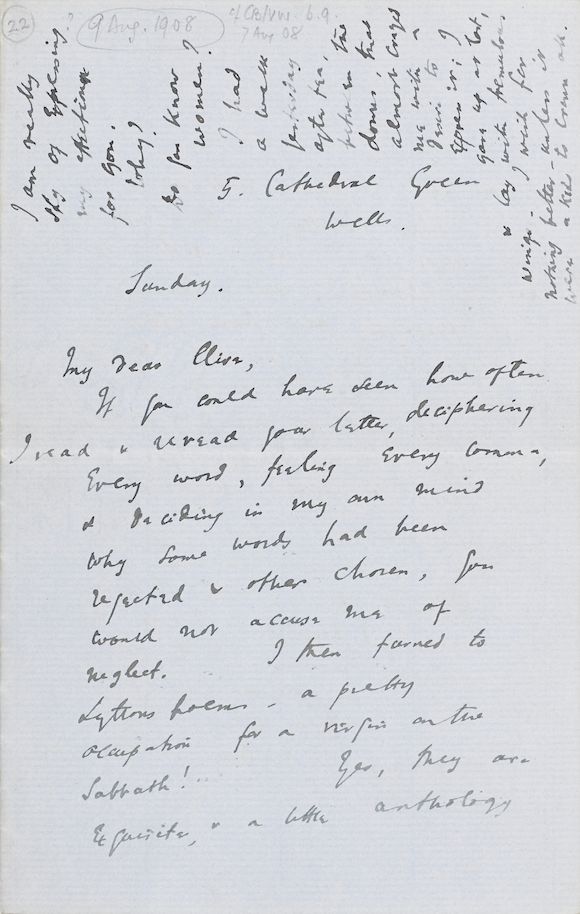 22
9 Aug. 1908
cf CB/VW. b.9.
7 Aug 08
I am really
shy of expressing
my affection
for you.
Why?
Do you know
women?
I had
a walk
yesterday
after tea,
between the
downs, that
almost crazed
me with a
desire to
express it; I
gave up at last,
& lay with tremulous
wings. I wish for
nothing better – unless it
were a kiss to crown all.
5. Cathedral Green
Wells.
Sunday.
My dear Clive,
If you could have seen how often
I read & reread your letter, deciphering
every word, feeling every comma,
& deciding in my own mind
why some words had been
rejected & others chosen, you
would not accuse me of
neglect. I then turned to
Lyttons poems – a pretty
occupation for a virgin on the
Sabbath! Yes, they are
exquisite, & a little anthology